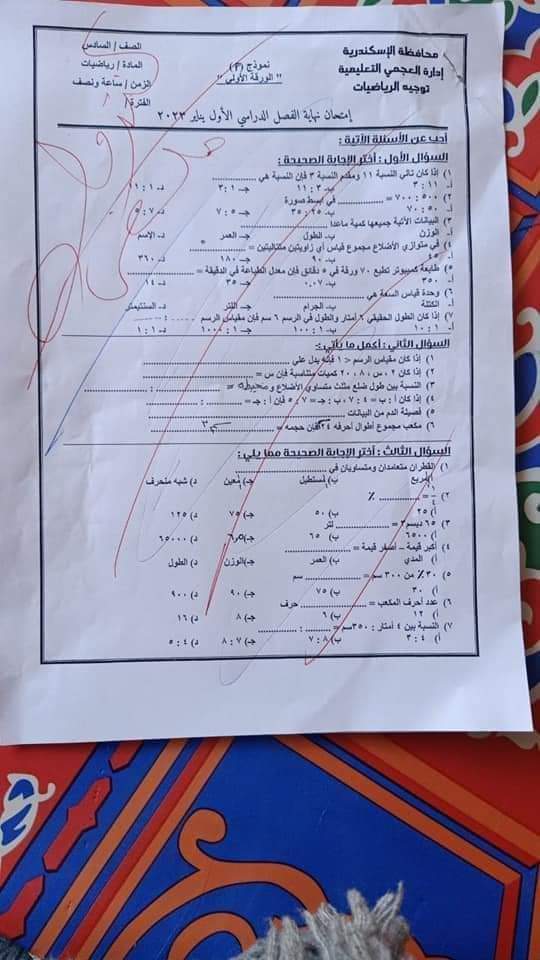 محافظة الإسكندرية
إدارة العجمي التعليمية
توجيه الرياضيات
نموذج (٣)
" الورقة الأولى "
الصف / السادس
المادة / رياضيات
الزمن / ساعة ونصف
الفترة /
إمتحان نهاية الفصل الدراسي الأول يناير ٢٠٢٣
أجب عن الأسئلة الآتية :
السؤال الأول : أختر الإجابة الصحيحة :
١) إذا كان تالي النسبة ١١ ومقدم النسبة ٣ فإن النسبة هي ..............
أ- ١١ : ٣ ب- ٣ : ١١ جـ- ١ : ٣ د- ١ : ١١
٢) ٥٠٠ : ٧٠٠ = .............. في أبسط صورة
أ- ٥٠ : ٧٠ ب- ٢٥ : ٣٥ جـ- ٥ : ٧ د- ٧ : ٥
٣) البيانات الآتية جميعها كمية ماعدا ..............
أ- الوزن ب- الطول جـ- العمر د- الإسم
٤) في متوازي الأضلاع مجموع قياس أي زاويتين متتاليتين = .............. °
أ- ٤٥ ب- ٩٠ جـ- ١٨٠ د- ٣٦٠
٥) طابعة كمبيوتر تطبع ٧٠ ورقة في ٥ دقائق فإن معدل الطباعة في الدقيقة = ..............
أ- ٣٥٠ ب- ٠,٠٧ جـ- ٣٥ د- ١٤
٦) وحدة قياس السعة هي ..............
أ- الكتلة ب- الجرام جـ- اللتر د- السنتيمتر
٧) إذا كان الطول الحقيقي ٦ أمتار والطول في الرسم ٦ سم فإن مقياس الرسم ...... : ......
أ- ١ : ١٠ ب- ١ : ١٠٠ جـ- ١ : ١٠٠٠ د- ١ : ١
السؤال الثاني : أكمل ما يأتي :-
١) إذا كان مقياس الرسم < ١ فإنه يدل علي ..............
٢) إذا كان ٢ ، س ، ٨ ، ٢٠ كميات متناسبة فإن س = ..............
٣) النسبة بين طول ضلع مثلث متساوي الأضلاع و محيطه = ...... : ......
٤) إذا كان أ : ب = ٤ : ٧ ، ب : جـ = ٧ : ٥ فإن أ : جـ = ...... : ......
٥) فصيلة الدم من البيانات ..............
٦) مكعب مجموع أطوال أحرفه ٢٤ فإن حجمه = ..............
السؤال الثالث : أختر الإجابة الصحيحة مما يلي :
١) القطران متعامدان ومتساويان في ..............
أ) مربع ب) مستطيل جـ) معين د) شبه منحرف
٢) ١/٤ = .............. ٪
أ) ٢٥ ب) ٥٠ جـ) ٧٥ د) ١٢٥
٣) ٦٥ ديسم٣ = .............. لتر
أ) ٦٥٠٠ ب) ٦٥ جـ) ٦,٥ د) ٦٥٠٠٠
٤) أكبر قيمة – أصغر قيمة = ..............
أ) المدي ب) العمر جـ) الوزن د) الطول
٥) ٣٠٪ من ٣٠٠ سم = .............. سم
أ) ٣٠ ب) ٧٥ جـ) ٩٠ د) ٩٠٠
٦) عدد أحرف المكعب = .............. حرف
أ) ١٢ ب) ٦ جـ) ٨ د) ١٦
٧) النسبة بين ٤ أمتار : ٣٥٠سم = ...... : ......
أ) ٤ : ٣ ب) ٨ : ٧ جـ) ٧ : ٨ د) ٤ : ٥